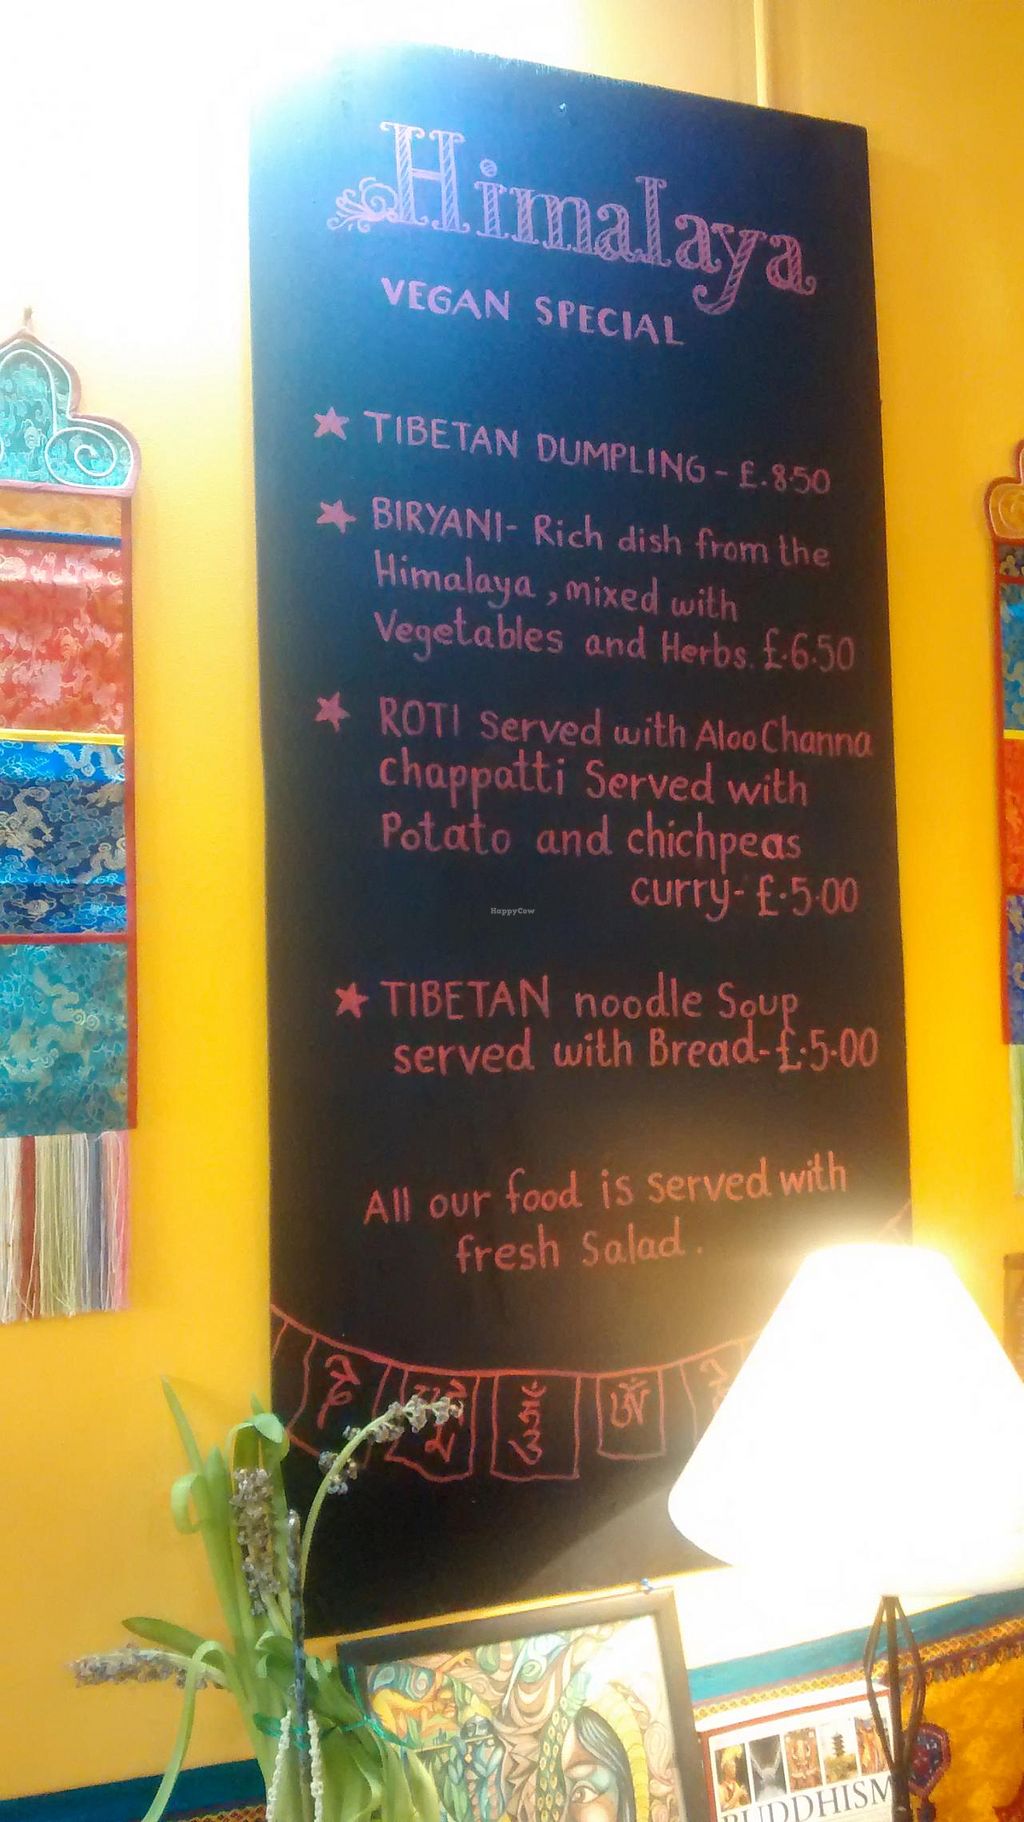 Himalaya
VEGAN SPECIAL
TIBETAN DUMPLING - £.8.50
BIRYANI- Rich dish from the
Himalaya, mixed with
Vegetables and Herbs. £.6.50
ROTI Served with Aloo Channa
chappatti Served with
Potato and chichpeas
curry- £.5.00
HappyCow
TIBETAN noodle Soup
served with Bread- £.5.00
All our food is served with
fresh Salad.
BUDDHISM